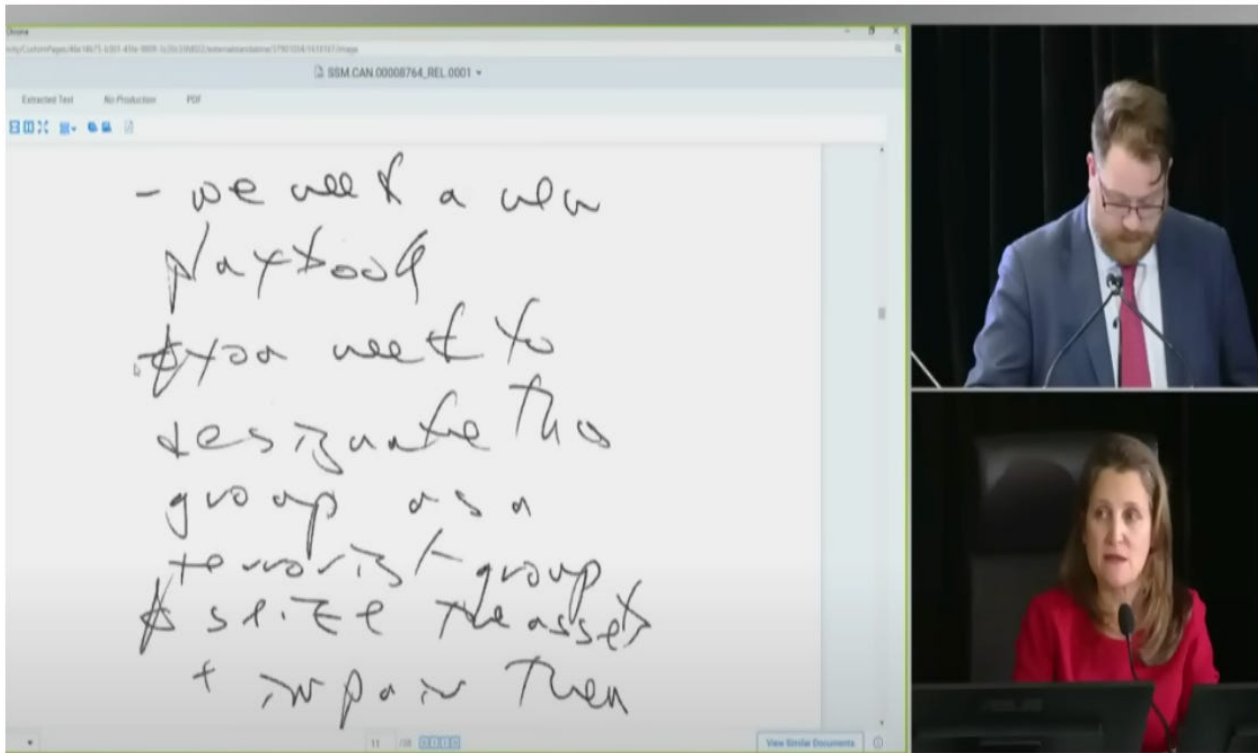 Chrome
SSM.CAN.00008764_REL.0001
Extracted Text No Production PDF
- we need a new
playbook
you need to
designate the
group as a
terrorist group
seize the assets
+ impair them
11
View Similar Documents